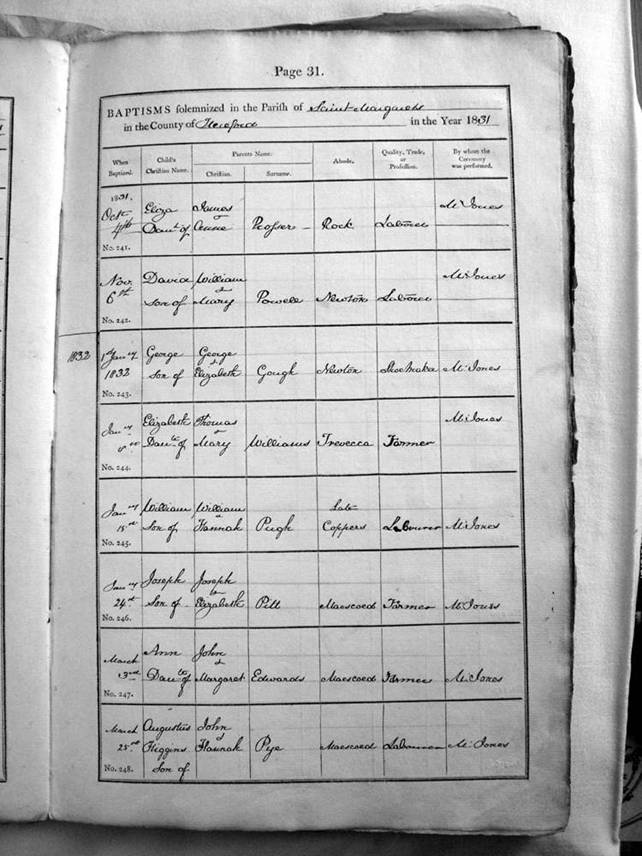 Page 31.
BAPTISMS solemnized in the Parish of Saint Margarets
in the County of Hereford in the Year 1831
When Baptized. Child's Christian Name. Parents Name. Christian. Surname. Abode. Quality, Trade, or Profession. By whom the Ceremony was performed.
1831. Octr 4th No. 241. Eliza Daur of James & Anne Prosser Rock Labourer Mr Jones
Nov. 6th No. 242. David Son of William & Mary Powell Newton Labourer Mr Jones
1832 1st Jany 1832 No. 243. George Son of George & Elizabeth Gough Newton Shoemaker Mr Jones
Jany No. 244. Elizabeth Daur of Thomas & Mary Williams Trevecca Farmer Mr Jones
Jany 15 No. 245. William Son of William & Hannah Pugh Coppers Labourer Mr Jones
Jany 24 No. 246. Joseph Son of Joseph & Elizabeth Pitt Maescoed Farmer Mr Jones
March No. 247. Ann Daur of John & Margaret Edwards Maescoed Farmer Mr Jones
March 25 No. 248. Augustus Higgins Son of John & Hannah Pye Maescoed Labourer Mr Jones